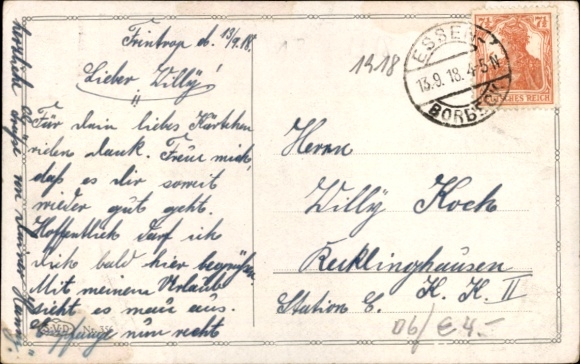 Frintrop d. 13/9.18.
Lieber Willÿ!
Für dein liebes Kärtchen
vielen dank. Freue mich,
daß es dir soweit
wieder gut geht.
Hoffentlich darf ich
dich bald hier begrüßen.
Mit meinem Urlaub
sieht es mau aus.
nun recht
herzlich
von deiner
1918
ESSEN
13.9.18.4-5N
BORBECK
7½ 7½
DEUTSCHES REICH
Herrn
Willÿ Koch
Recklinghausen
Station E. K. K. II
06/€4.-